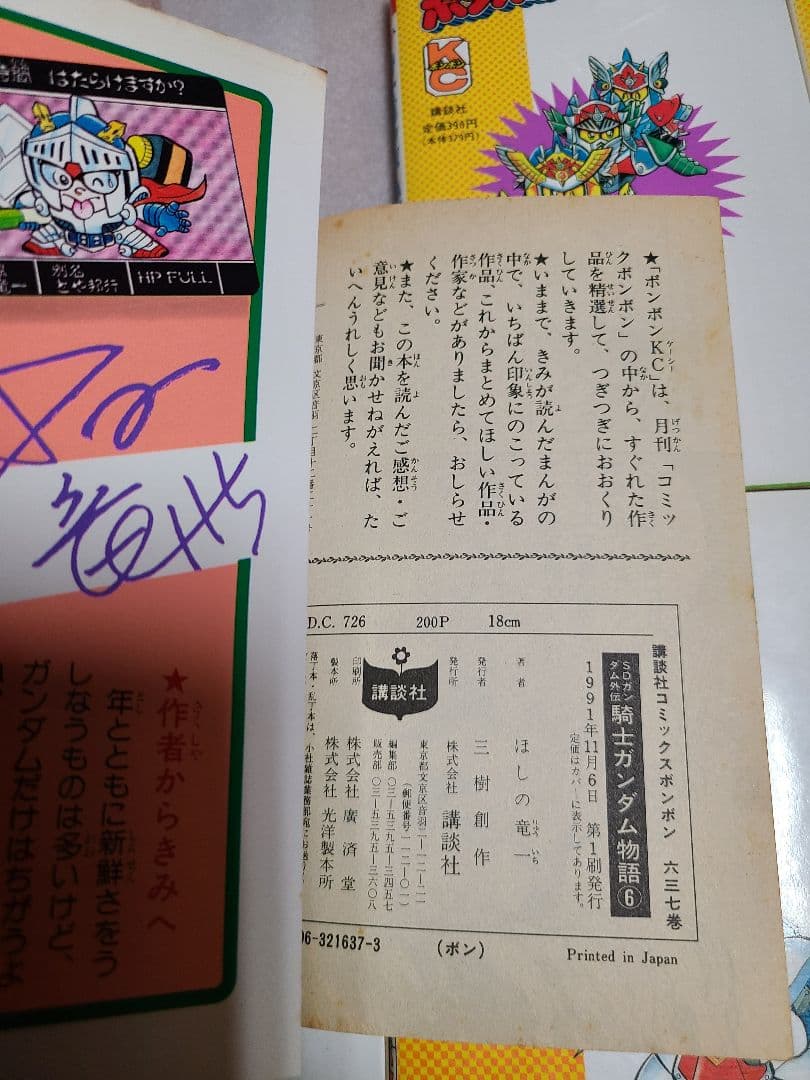 はたらけますか?
別名
HP FULL
★作者からきみへ
年とともに新鮮さをう
しなうものは多いけど、
ガンダムだけはちがうよ
KC
講談社
定価390円
(本体379円)
★「ボンボンKC」は、月刊「コミッ
クボンボン」の中から、すぐれた作
品を精選して、つぎつぎにおおくり
していきます。
★いままで、きみが読んだまんがの
中で、いちばん印象にのこっている
作品、これからまとめてほしい作品・
作家などがありましたら、おしらせ
ください。
★また、この本を読んだご感想・ご
意見などもお聞かせねがえれば、た
いへんうれしく思います。
D.C. 726 200P 18cm
講談社コミックスボンボン 六三七巻
SDガンダム外伝 騎士ガンダム物語⑥
1991年11月6日 第1刷発行
定価はカバーに表示してあります。
著者 ほしの竜一
発行者 三樹創作
発行所 株式会社 講談社
東京都文京区音羽二-一二-二一
(郵便番号一一二-〇一)
編集部 〇三-五三九五-三四五七
販売部 〇三-五三九五-三六〇八
講談社
印刷所 株式会社 廣済堂
製本所 株式会社 光洋製本所
06-321637-3 (ボン) Printed in Japan